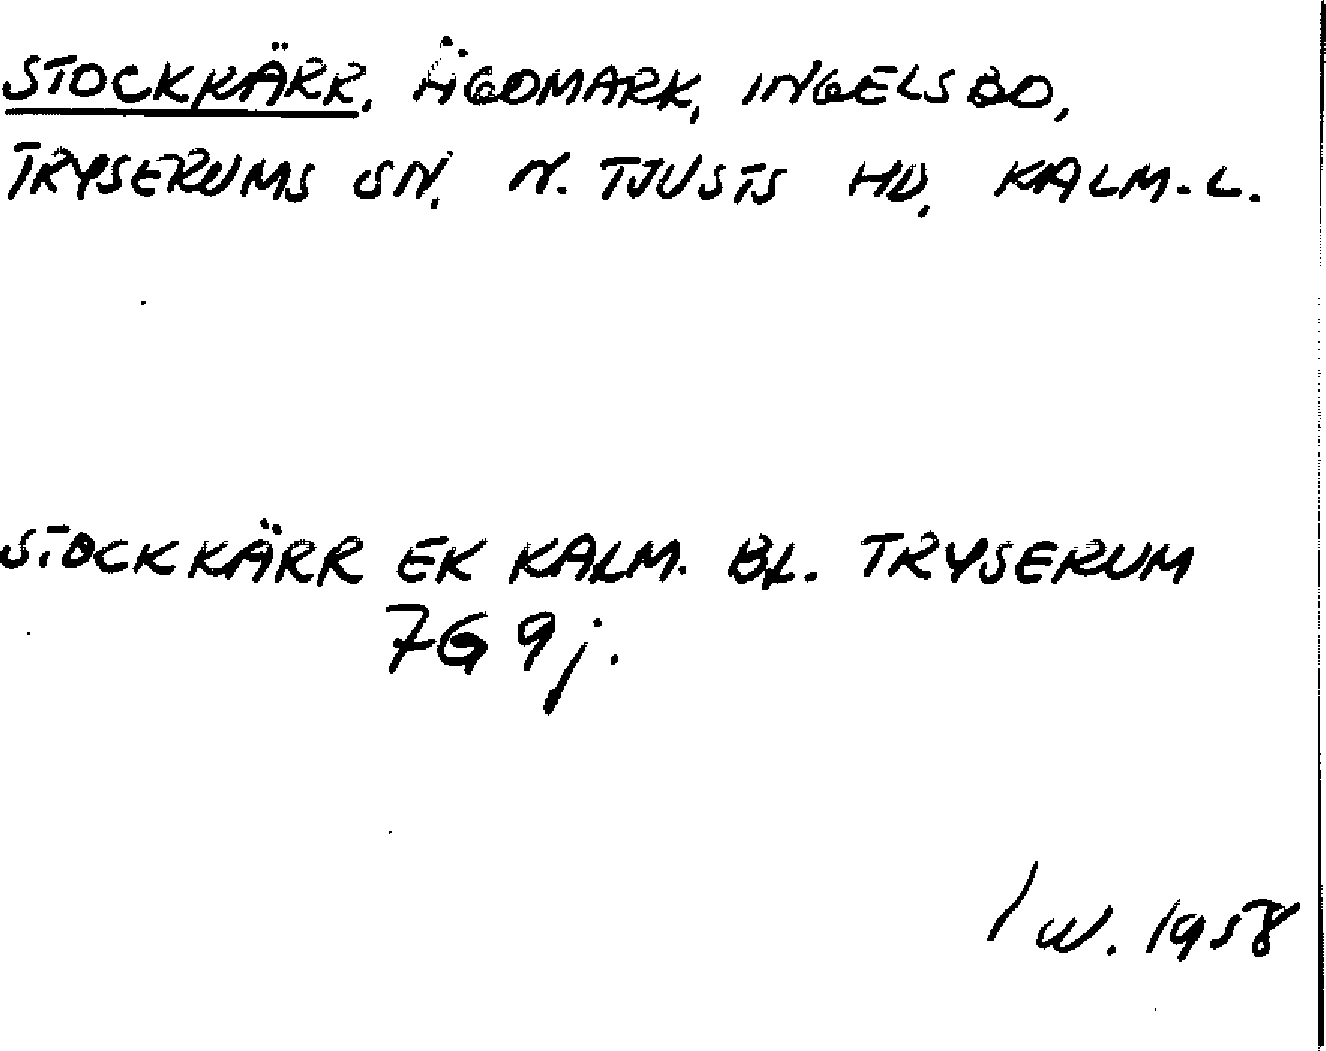 STOCKKÄRR, ÄGOMARK, INGELSBO,
TRYSERUMS SN. N. TJUSTS HD, KALM-L.
STOCKKÄRR EK KALM. BL. TRYSERUM
7G 9j.
/ W. 1958